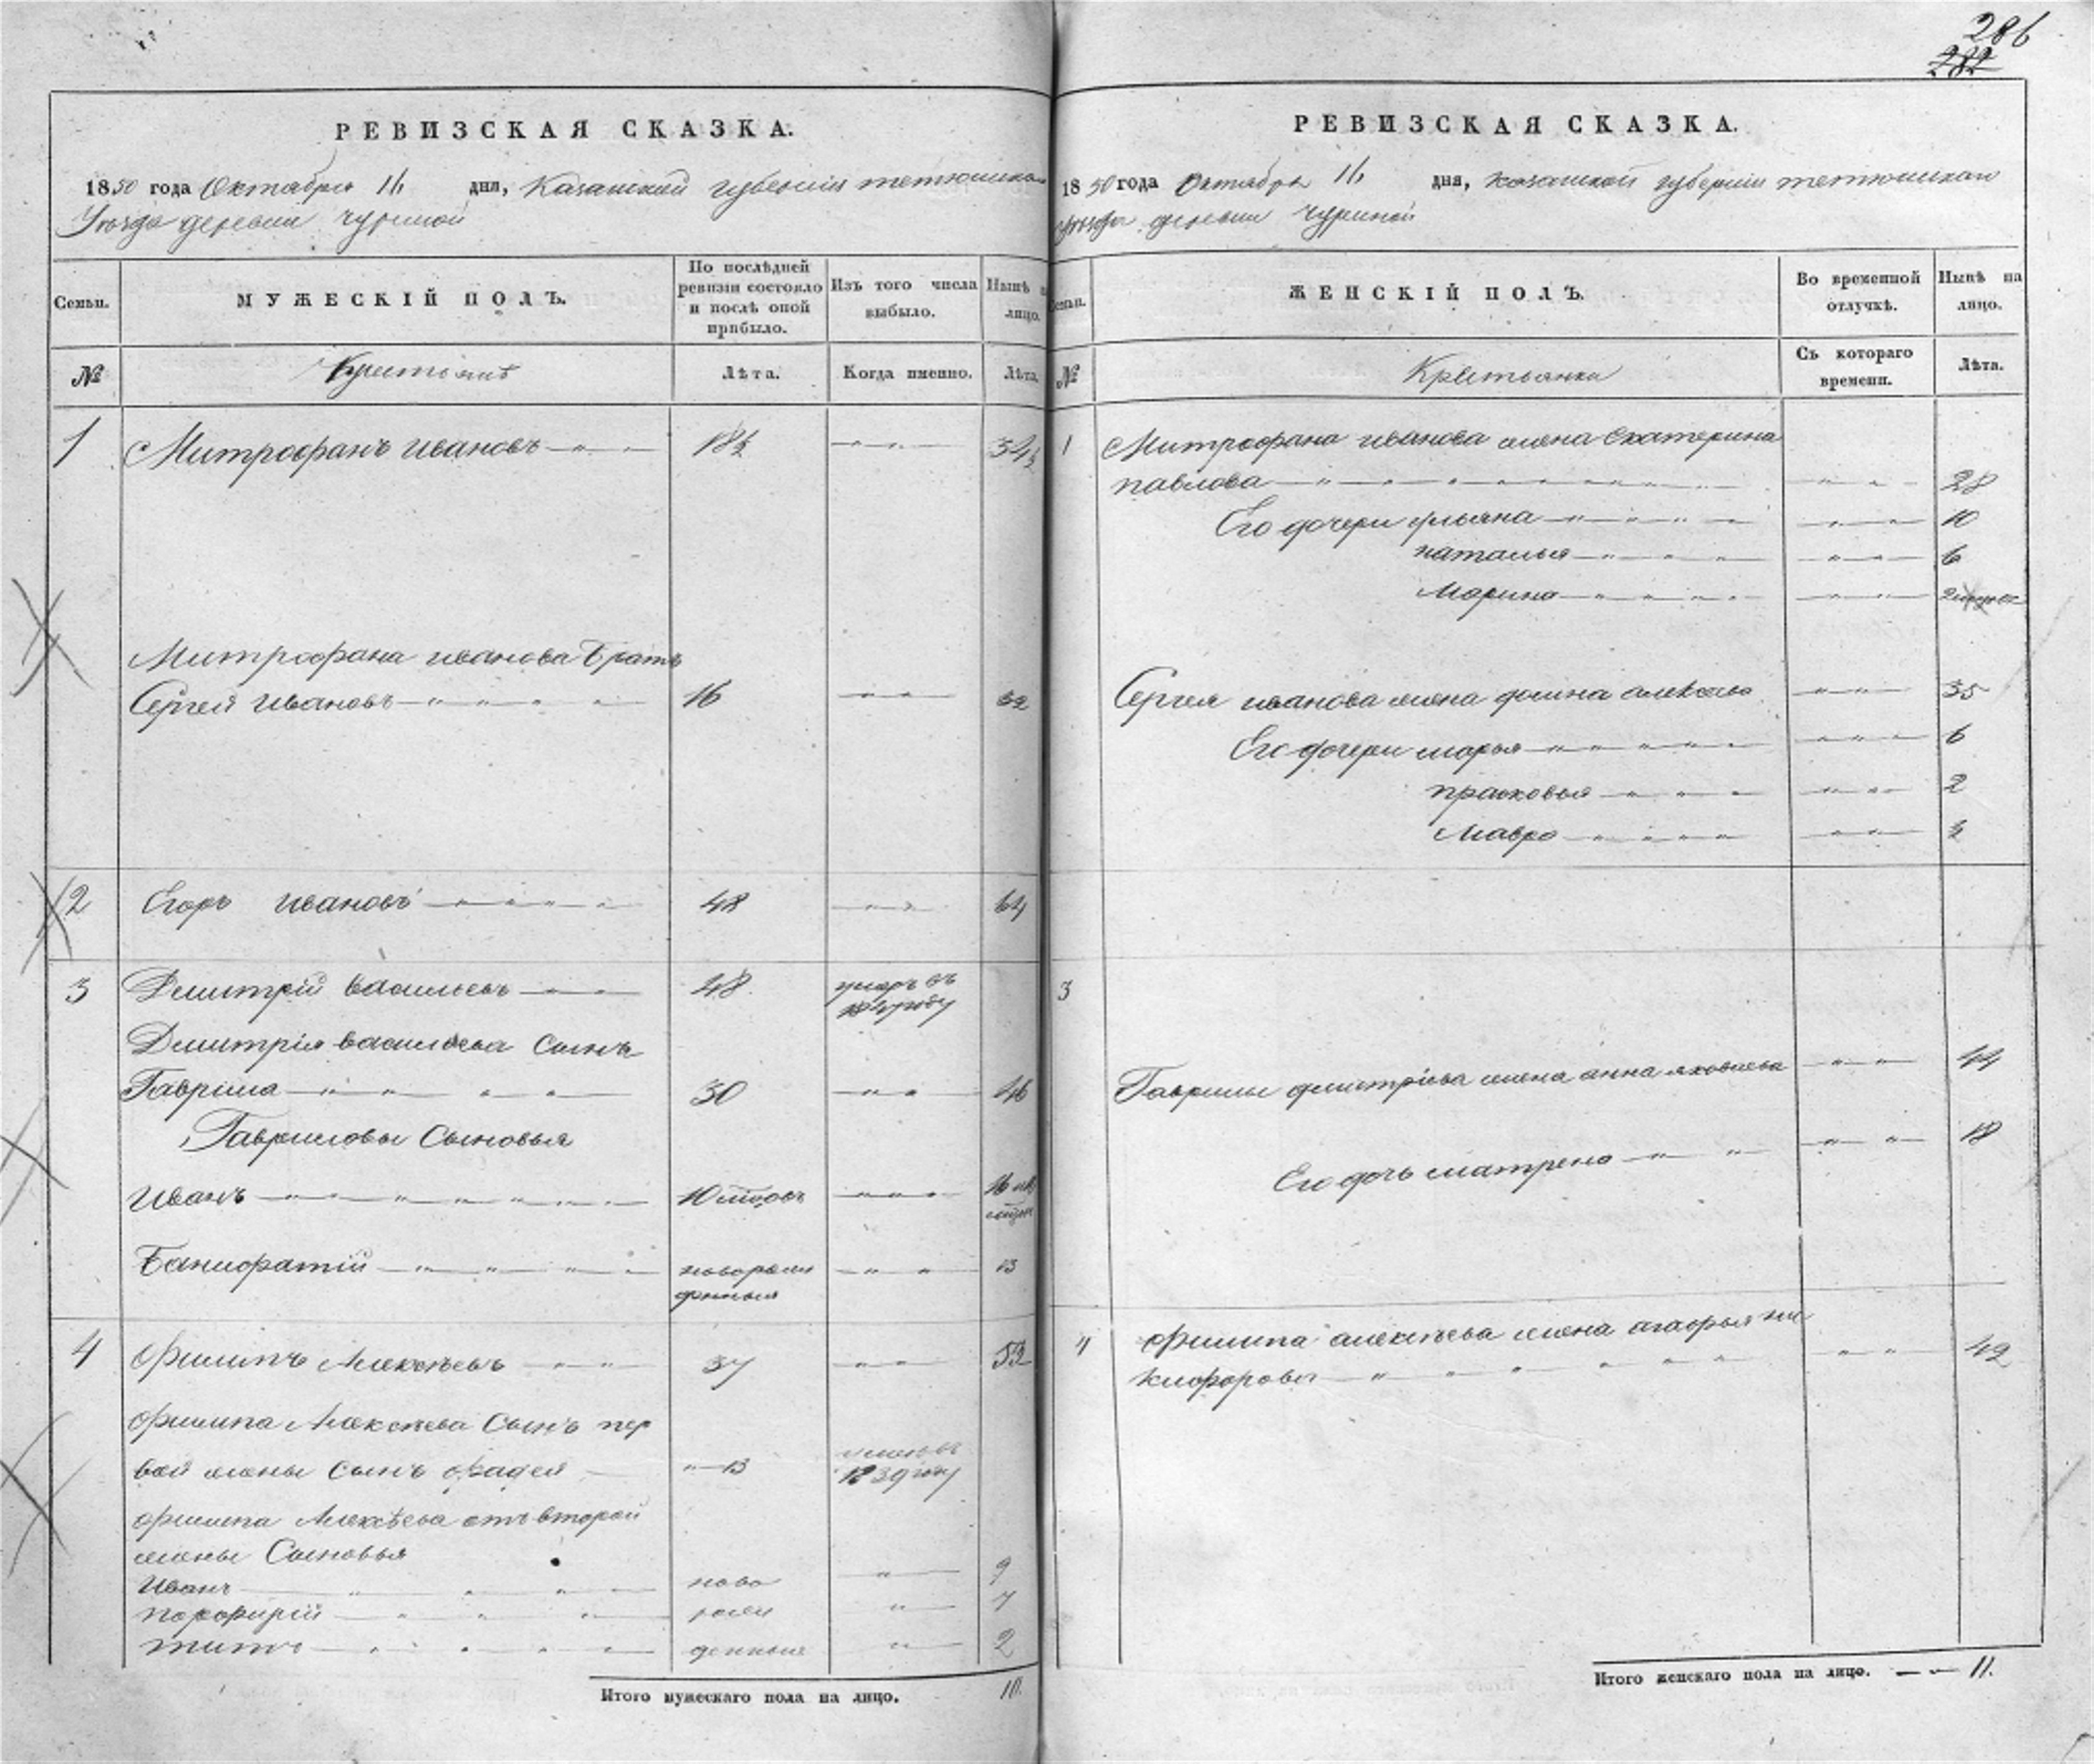 286
282
РЕВИЗСКАЯ СКАЗКА.
1850 года Октября 16 дня, Казанской губернии тетюшскаго
Уезда деревни чуриной
Семьи. МУЖЕСКІЙ ПОЛЪ. По послѣдней ревизіи состояло и послѣ оной прибыло. Изъ того числа выбыло. Нынѣ на лицо.
№ Крестьянъ Лѣта. Когда именно. Лѣта.
1 Митрофанъ ивановъ 18½ 34½
Митрофана иванова Братъ
Сергей Ивановъ 16 32
2 Егоръ ивановъ 48 64
3 Дмитрій васильевъ 48 умеръ въ году
Дмитрія васильева Сынъ
Гаврила 30 46
Гавриловы Сыновья
Иванъ 10 16
Панкратій новорож 13
денныя
4 Филипъ Алексѣевъ 37 53
Филипа Алексѣева Сынъ пер
вой жены сынъ фадей 13 1839 году
филипа Алексѣева отъ второй
жены Сыновья
Иванъ ново 9
порфирій рож 7
титъ денныя 2
Итого мужескаго пола на лицо. 10.
РЕВИЗСКАЯ СКАЗКА.
1850 года Октября 16 дня, казанской губернии тетюшскаго
уезда деревни чуриной
Семьи. ЖЕНСКІЙ ПОЛЪ. Во временной отлучкѣ. Нынѣ на лицо.
№ Крестьянки Съ котораго времени. Лѣта.
1 Митрофана иванова жена Екатерина
павлова 28
Его дочери ульяна 10
наталья 6
Марина
Сергея иванова жена домна алексева 35
Его дочери марья 6
прасковья 2
Мавра ½
3
Гаврилы дмитріева жена анна яковлева 44
Его дочь матрена 18
4 филипа алексѣева жена агафья ни
кифорова 42
Итого женскаго пола на лицо. 11.